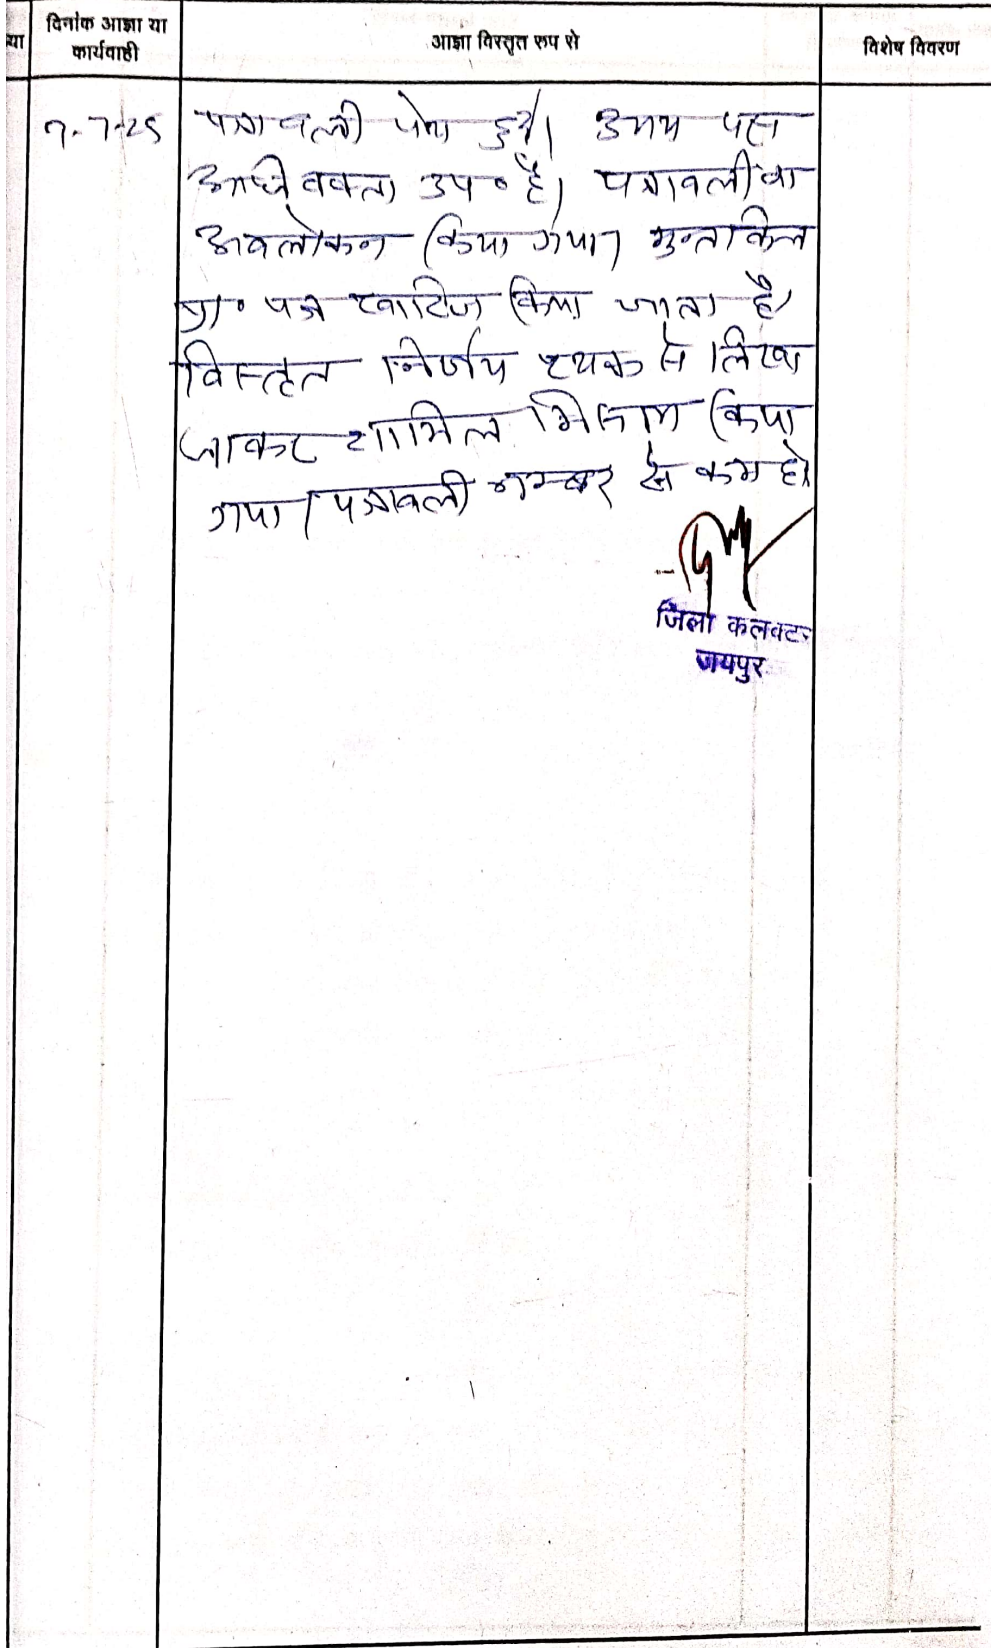 या
दिनांक आज्ञा या
कार्यवाही
आज्ञा विस्तृत रुप से
विशेष विवरण
7-7-25 पत्रावली पेश हुई। उभय पक्ष
अधिवक्ता उप० है। पत्रावली का
अवलोकन किया गया। मुन्तकिल
प्रा० पत्र खारिज किया जाता है।
विस्तृत निर्णय पृथक से लिखा
जाकर शामिल मिसल किया
गया। पत्रावली नम्बर से कम हो
जिला कलक्टर
जयपुर